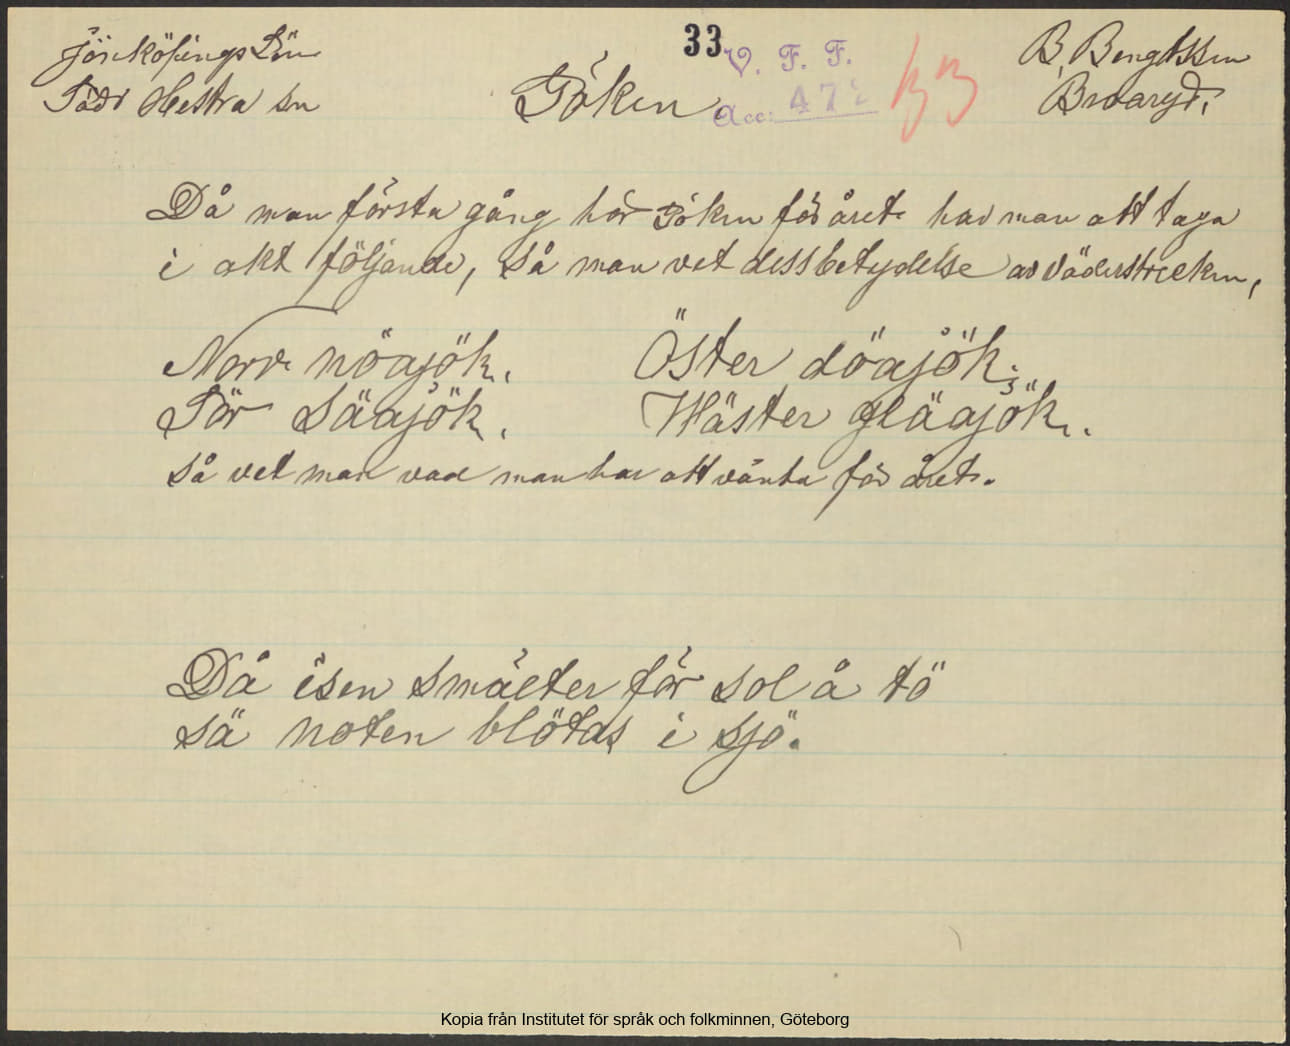 Jönköpings Län
33
V. F. F.
B. Bengtsson
Södr Hestra sn
Göken.
Acc: 472
Broaryd.
Då man första gång hör Göken för året har man att taga
i akt följande, så man vet dess betydelse av väderstrecken,
Norr nöajök. Öster döajök.
Sör säajök. Wäster gläajök.
så vet man vad man har att vänta för året.
Då isen smälter för sol å tö
sä noten blötas i sjö.
Kopia från Institutet för språk och folkminnen, Göteborg